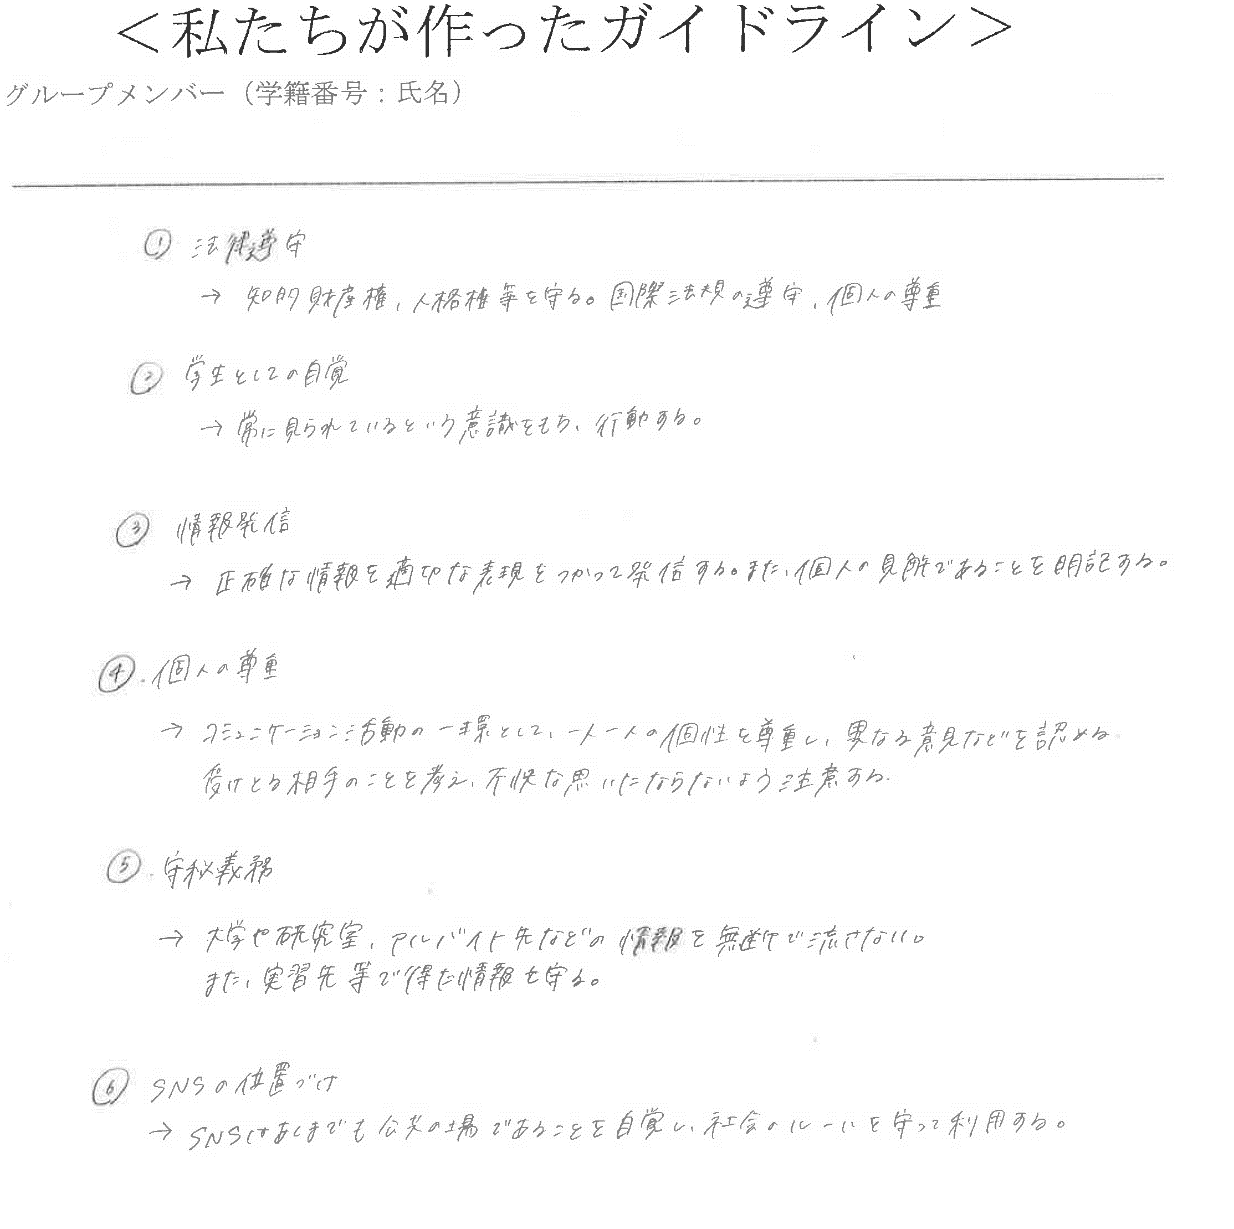 ＜私たちが作ったガイドライン＞
グループメンバー（学籍番号：氏名）
① 法律遵守
→ 知的財産権、人格権等を守る。国際法規の遵守、個人の尊重
② 学生としての自覚
→ 常に見られているという意識をもち、行動する。
③ 情報発信
→ 正確な情報を適切な表現をつかって発信する。また、個人の見解であることを明記する。
④. 個人の尊重
→ コミュニケーション活動の一環として、一人一人の個性を尊重し、異なる意見などを認める
受けとる相手のことを考え、不快な思いにならないよう注意する.
⑤. 守秘義務
→ 大学や研究室、アルバイト先などの情報を無断で流さない。
また、実習先等で得た情報を守る。
⑥ SNSの位置づけ
→ SNSはあくまでも公共の場であることを自覚し、社会のルールを守って利用する。